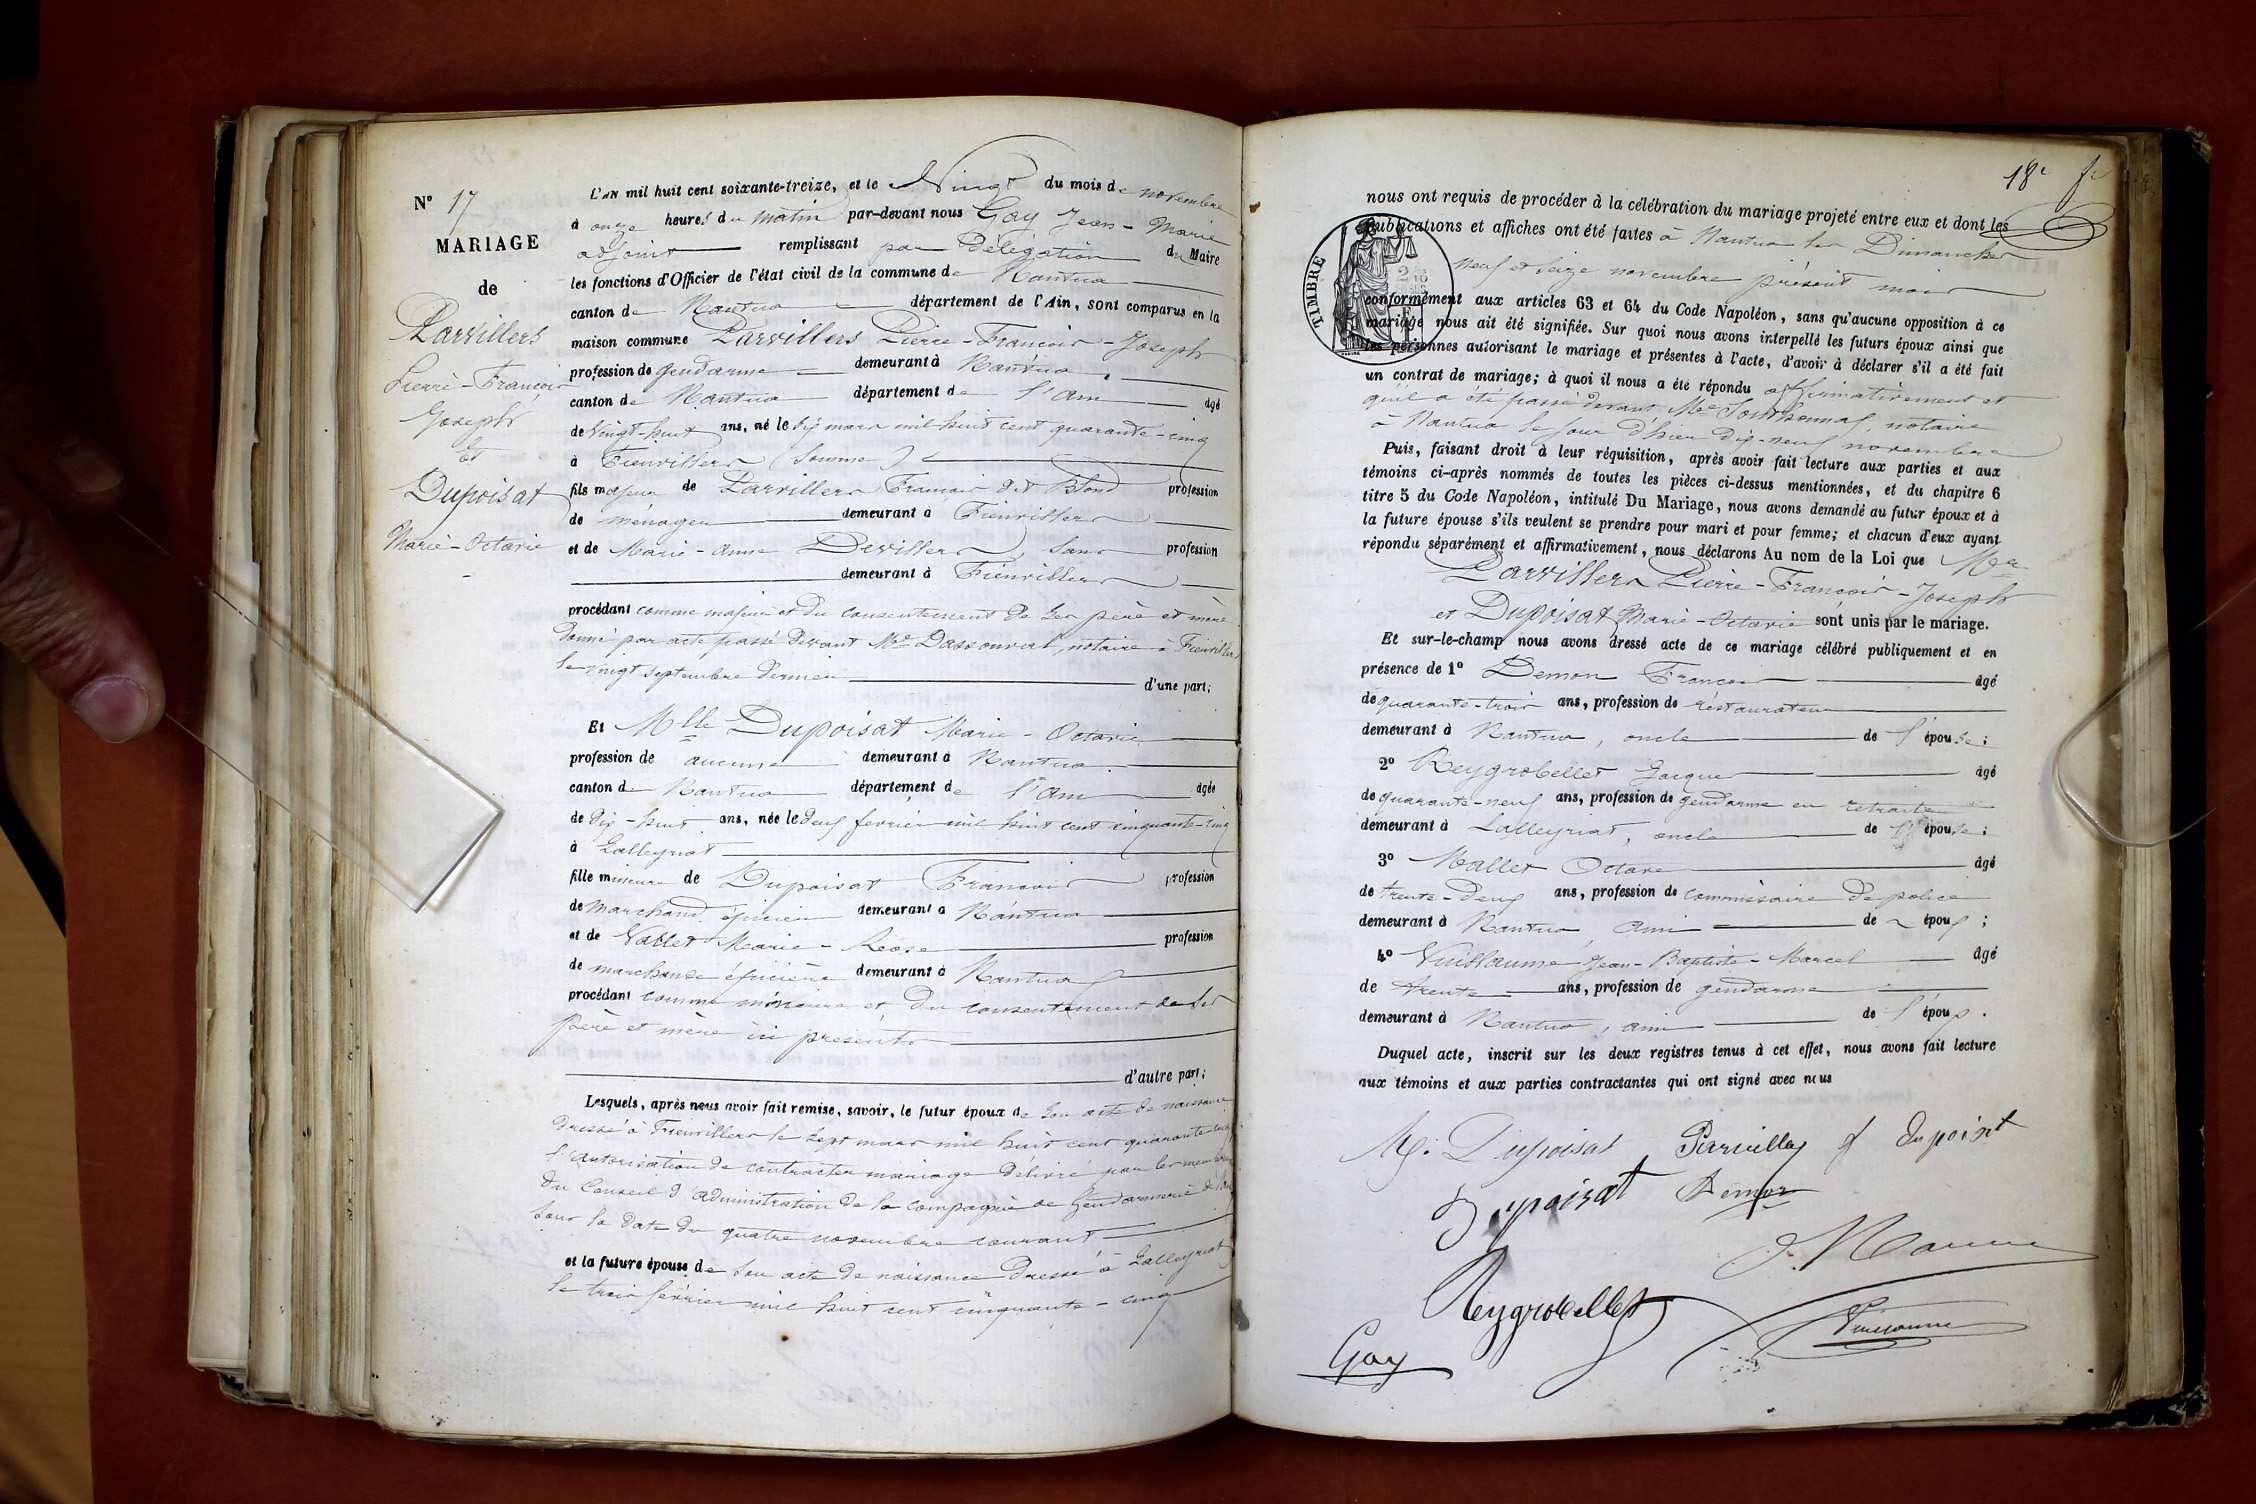 N° 17
MARIAGE
de
Parvillers
Pierre-François
Joseph
et
Dupoisat
Marie-Octavie
L'AN mil huit cent soixante-treize, et le Vingt du mois de novembre
à onze heures du matin par-devant nous Gay Jean-Marie
adjoint remplissant par Délégation du Maire
les fonctions d'Officier de l'état civil de la commune de Nantua
canton de Nantua département de l'Ain, sont comparus en la
maison commune Parvillers Pierre-François-Joseph
profession de gendarme demeurant à Nantua
canton de Nantua département de l'Ain âgé
de Vingt-huit ans, né le six mars mil huit cent quarante-cinq
à Fienvillers (Somme)
fils majeur de Parvillers François dit Blond profession
de ménager demeurant à Fienvillers
et de Marie-Anne Devillers, sans profession
demeurant à Fienvillers
procédant comme majeur et du consentement de ses père et mère
donné par acte passé devant Me notaire à Fienvillers
le vingt septembre dernier d'une part;
Et Mlle Dupoisat Marie-Octavie
profession de aucune demeurant à Nantua
canton de Nantua département de l'Ain âgée
de dix-huit ans, née le deux février mil huit cent cinquante-cinq
à Lalleyriat
fille mineure de Dupoisat François profession
de marchand épicier demeurant à Nantua
et de Vallet Marie- profession
de marchande épicière demeurant à Nantua
procédant comme mineure et du consentement de ses
père et mère ici présents
d'autre part;
Lesquels, après nous avoir fait remise, savoir, le futur époux de son acte de naissance
dressé à Fienvillers le sept mars mil huit cent quarante-cinq
l'autorisation de contracter mariage délivré par les membres
du Conseil d'administration de la compagnie de Gendarmerie de l'Ain
sous la date du quatre novembre courant
et la future épouse de son acte de naissance dressé à Lalleyriat
le trois février mil huit cent cinquante-cinq
18e f
nous ont requis de procéder à la célébration du mariage projeté entre eux et dont les
publications et affiches ont été faites à Nantua les Dimanches
neuf et seize novembre présent mois
TIMBRE
conformément aux articles 63 et 64 du Code Napoléon, sans qu'aucune opposition à ce
mariage nous ait été signifiée. Sur quoi nous avons interpellé les futurs époux ainsi que
les personnes autorisant le mariage et présentes à l'acte, d'avoir à déclarer s'il a été fait
un contrat de mariage; à quoi il nous a été répondu affirmativement et
qu'il a été passé devant Me notaire
à Nantua le jour d'hier dix-neuf novembre
Puis, faisant droit à leur réquisition, après avoir fait lecture aux parties et aux
témoins ci-après nommés de toutes les pièces ci-dessus mentionnées, et du chapitre 6
titre 5 du Code Napoléon, intitulé Du Mariage, nous avons demandé au futur époux et à
la future épouse s'ils veulent se prendre pour mari et pour femme; et chacun d'eux ayant
répondu séparément et affirmativement, nous déclarons Au nom de la Loi que Mr
Parvillers Pierre-François-Joseph
et Dupoisat Marie-Octavie sont unis par le mariage.
Et sur-le-champ nous avons dressé acte de ce mariage célébré publiquement et en
présence de 1° Demon François âgé
de quarante-trois ans, profession de restaurateur
demeurant à Nantua, oncle de l'épouse;
2° Reygrobellet Jacques âgé
de quarante-neuf ans, profession de gendarme en retraite
demeurant à Lalleyriat, oncle de l'épouse;
3° Octave âgé
de trente-deux ans, profession de commissaire de police
demeurant à Nantua, ami de époux;
4° Vuillaume Jean-Baptiste-Marcel âgé
de trente ans, profession de gendarme
demeurant à Nantua, ami de l'époux.
Duquel acte, inscrit sur les deux registres tenus à cet effet, nous avons fait lecture
aux témoins et aux parties contractantes qui ont signé avec nous
M. Dupoisat Parvillers f dupoisat
Dupoisat Demon
Reygrobellet
Vuillaume
Gay